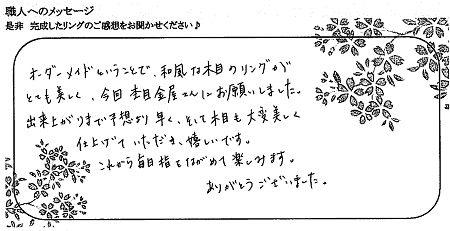 職人へのメッセージ
是非 完成したリングのご感想をお聞かせください♪
オーダーメイドということで、和風な木目のリングが
とても美しく、今回杢目金屋さんにお願いしました。
出来上がりまで予想より早く、そして木目も大変美しく
仕上げていただき、嬉しいです。
これから毎日指をながめて楽しみます。
ありがとうございました。